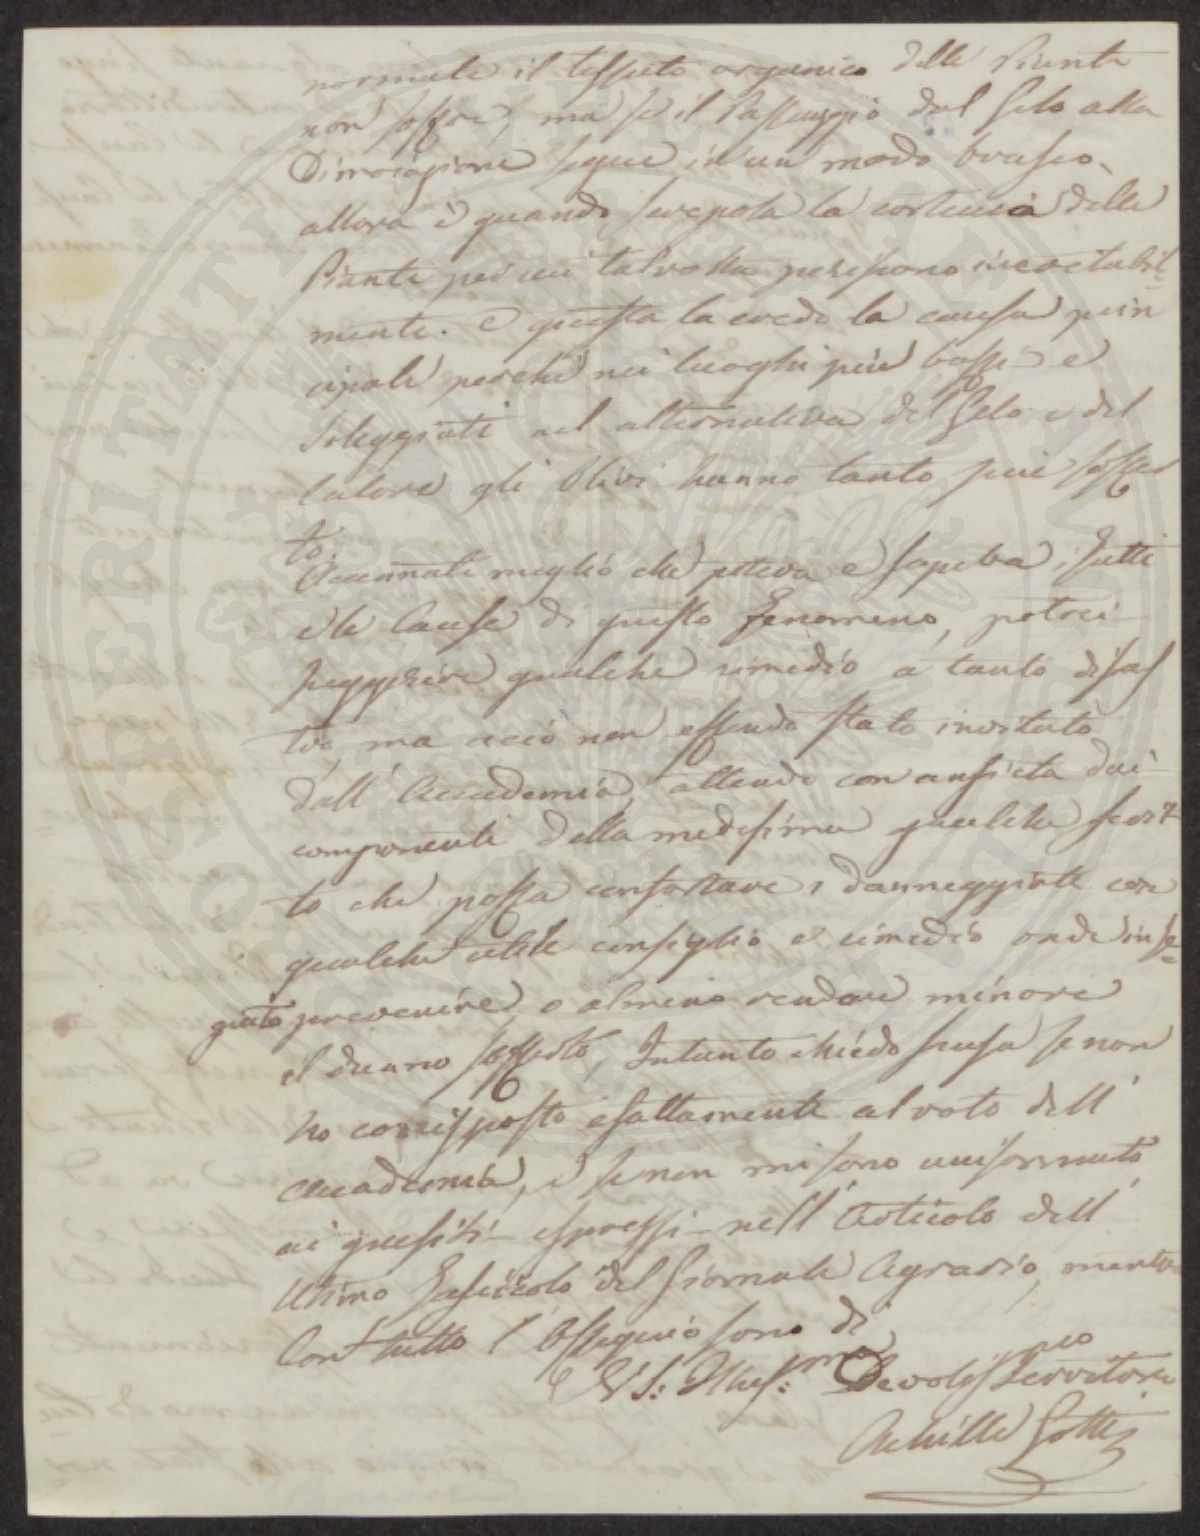 normale il tessuto organico delle Piante
non soffre, ma se il Passaggio dal Gelo alla
Dimoiazione segue in un modo brusco,
allora è quando screpola la corteccia delle
Piante per cui talvolta periscono inevitabil
mente. E questa la credo la causa prin
cipale perché nei luoghi più bassi e
Soleggiati all alternativa del Gelo e del
Calore gli Olivi hanno tanto più soffer
to.
Accennati meglio che poteva e sapeva i fatti
e le Cause di questo Fenomeno, potrei
suggerire qualche rimedio a tanto disas
tro, ma acciò non essendo stato invitato
dall' Accademia, attendo con ansietà dai
componenti della medesima qualche scrit
to che possa confortare i danneggiati con
qualche utile consiglio e rimedio onde in se
guito prevenire o almeno rendere minore
il danno sofferto, Intanto chiedo scusa se non
ho corrisposto esattamente al voto dell'
Accademia, e se non mi sono uniformato
ai quesiti espressi nell' Articolo dell'
Ultimo Fascicolo del Giornale Agrario, mentre
Con tutto l' Ossequio sono di
V S: Illus:ma Devotiss:mo Servitore
Achille Gotti
SOSPERITATI